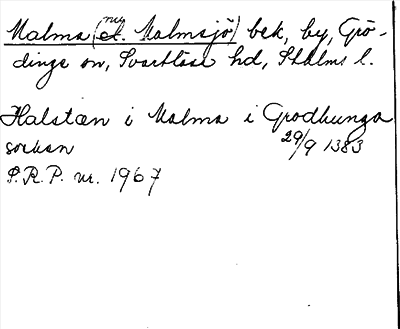 Malma (nu Malmsjö) bek, by, Grö-
dinge sn, Svartlösa hd, Sthlms l.
Halsten i Malma i Grodhunga
sockan 29/9 1383
S.R.P. nr. 1967